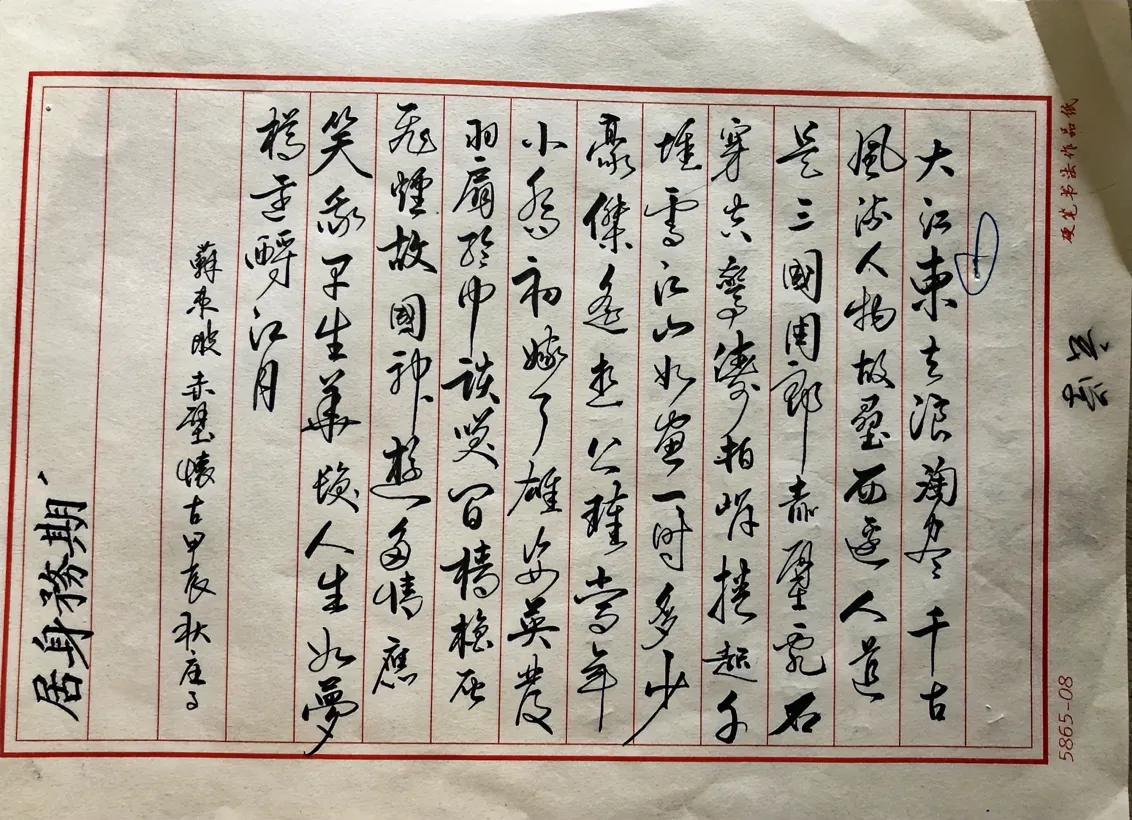 大江東去浪淘盡千古
風流人物故壘西邊人道
是三國周郎赤壁亂石
穿空驚濤拍岸捲起千
堆雪江山如畫一時多少
豪傑遙想公瑾當年
小喬初嫁了雄姿英發
羽扇綸巾談笑間檣櫓灰
飛煙故國神遊多情應
笑我早生華髮人生如夢
樽還酹江月
蘇東坡赤壁懷古甲辰秋
居身務期
硬笔书法作品纸
5865-08